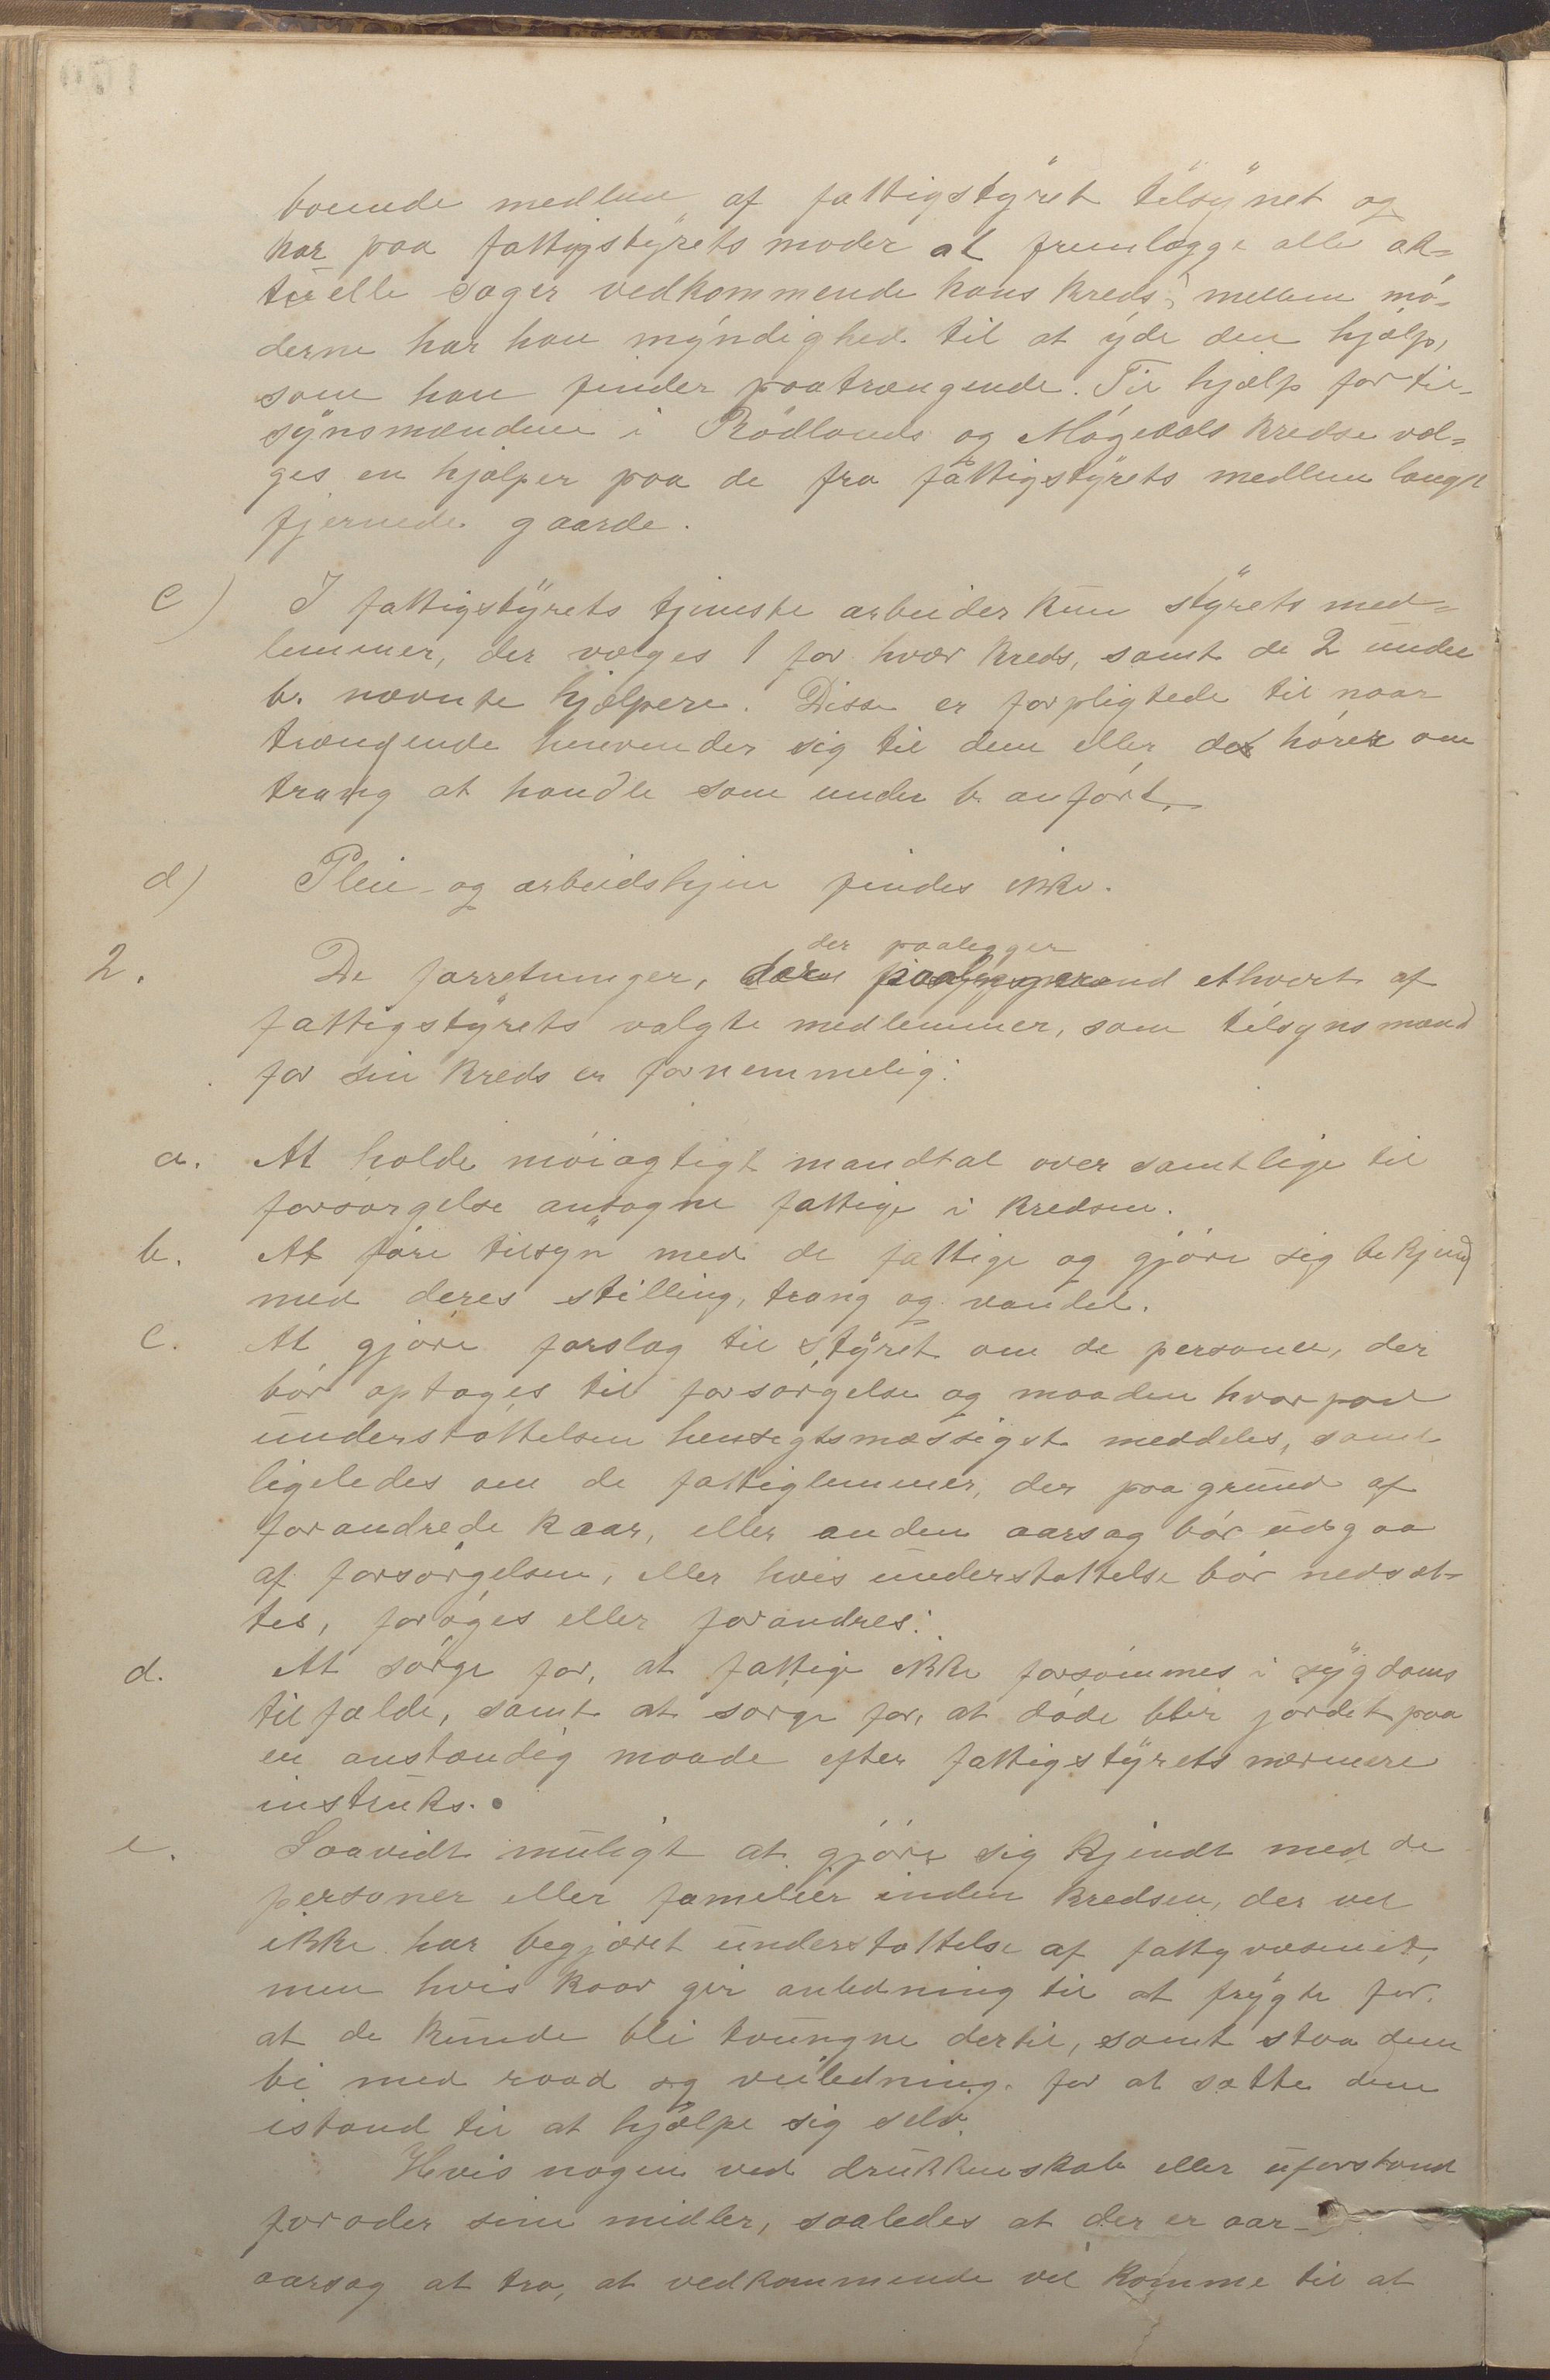 boende medlem af fattigstyret tilsynet og
har paa fattigstyrets møder at fremlægge alle ak-
tuelle sager vedkommende hans kreds; mellem mø-
derne har han myndighed til at yde den hjælp,
som han finder paatrængende. Til hjælp for til-
synsmændene i Rødlands og Møgedals kredse væl-
ges en hjælper paa de fra fattigstyrets medlem langt
fjernede gaarde.
c) I fattigstyrets tjeneste arbeider kun styrets med-
lemmer, der vælges 1 for hver kreds, samt de 2 under
b. nævnte hjælpere. Disse er forpligtede til naar
trængende henvender sig til dem eller de hører om
trang at handle som under b. anført.
d) Pleie- og arbeidshjem findes ikke.
der paalægger
2. De forretninger, ethvert af
fattigstyrets valgte medlemmer, som tilsynsmænd
for sin kreds er fornemmelig:
a. At holde nøiagtigt mandtal over samtlige til
forsørgelse antagne fattige i kredsen.
b. At føre tilsyn med de fattige og gjøre sig bekjend
med deres stilling, trang og vandel.
c. At gjøre forslag til styret om de personer, der
bør optages til forsørgelse og maaden hvorpaa
understøttelsen hensigtsmæssigst meddeles, samt
ligeledes om de fattiglemmer, der paa grund af
forandrede kaar, eller anden aarsag bør udgaa
af forsørgelsen, eller hvis understøttelse bør nedsæt-
tes, forøges eller forandres.
d. At sørge for, at fattige ikke forsømmes i sygdoms
tilfælde, samt at sørge for, at døde blir jordet paa
en anstændig maade efter fattigstyrets nærmere
instruks.
e. Saavidt muligt at gjøre sig kjendt med de
personer eller familier inden kredsen, der vel
ikke har begjæret understøttelse af fattigvæsenet,
men hvis kaar gir anledning til at frygte for
at de kunde bli tvungne dertil, samt staa dem
bi med raad og veiledning for at sætte dem
istand til at hjælpe sig selv.
Hvis nogen ved drukkenskab eller uforstand
forøder sine midler, saaledes at der er aar-
aarsag at tro, at vedkommende vil komme til at